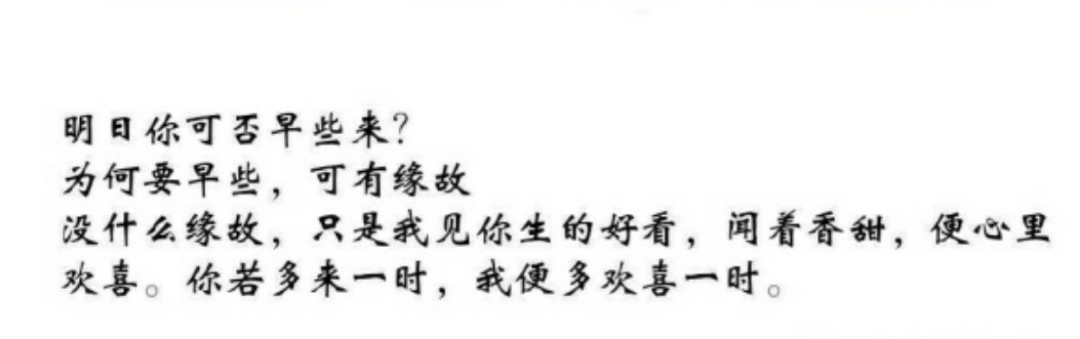 明日你可否早些来?
为何要早些，可有缘故
没什么缘故，只是我见你生的好看，闻着香甜，便心里
欢喜。你若多来一时，我便多欢喜一时。